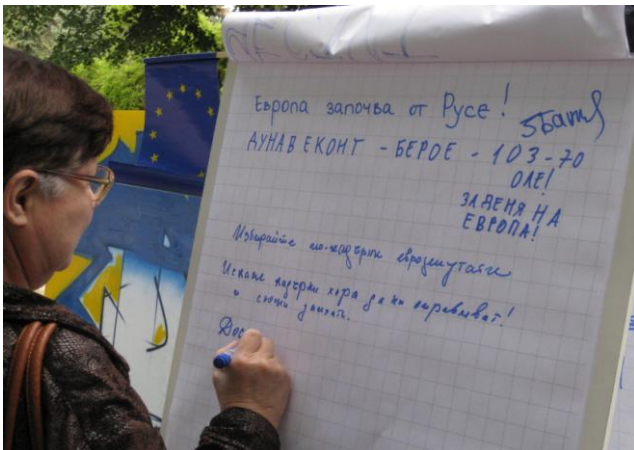 Европа започва от Русе!
ДУНАВ ЕКОНТ - БЕРОЕ - 103-70
ОЛЕ!
ЗА ДЕНЯ НА
ЕВРОПА!
Избирайте по-кадърни евродепутати
Искаме кадърни хора да ни управляват!
и
Дос